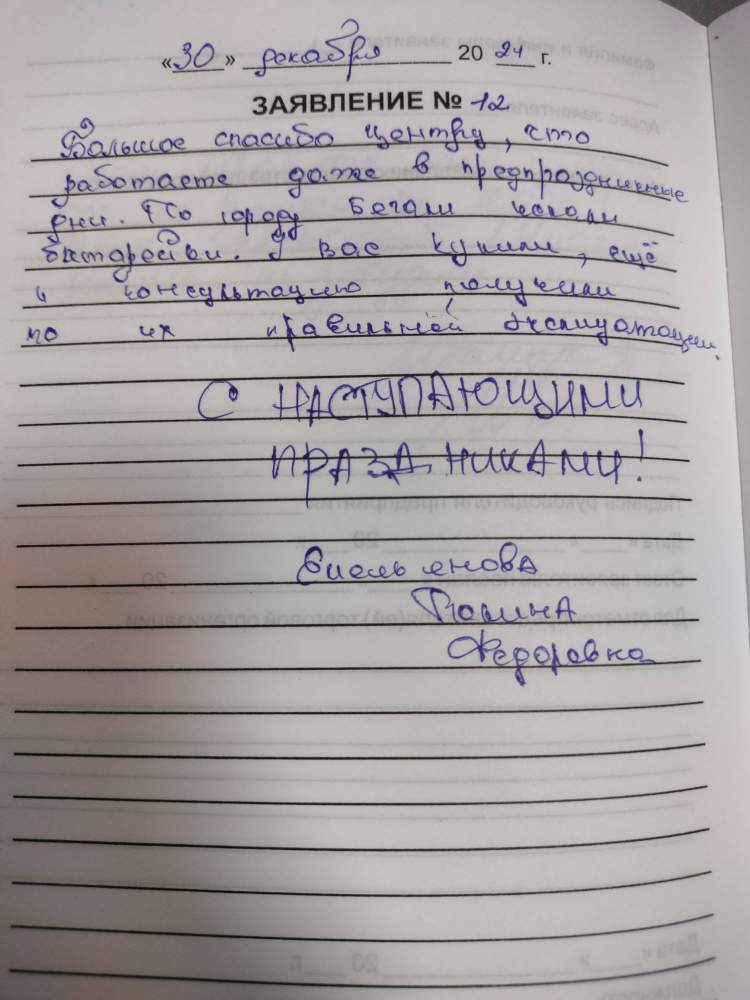 «30» декабря 2024 г.
ЗАЯВЛЕНИЕ № 12
Большое спасибо центру, что
работаете даже в предпраздничные
дни. По городу бегали искали
батарейки. У вас купили, ещё
и консультацию получили
по их правильной эксплуатации.
С НАСТУПАЮЩИМИ
ПРАЗДНИКАМИ!
Емельянова
Полина
Федоровна